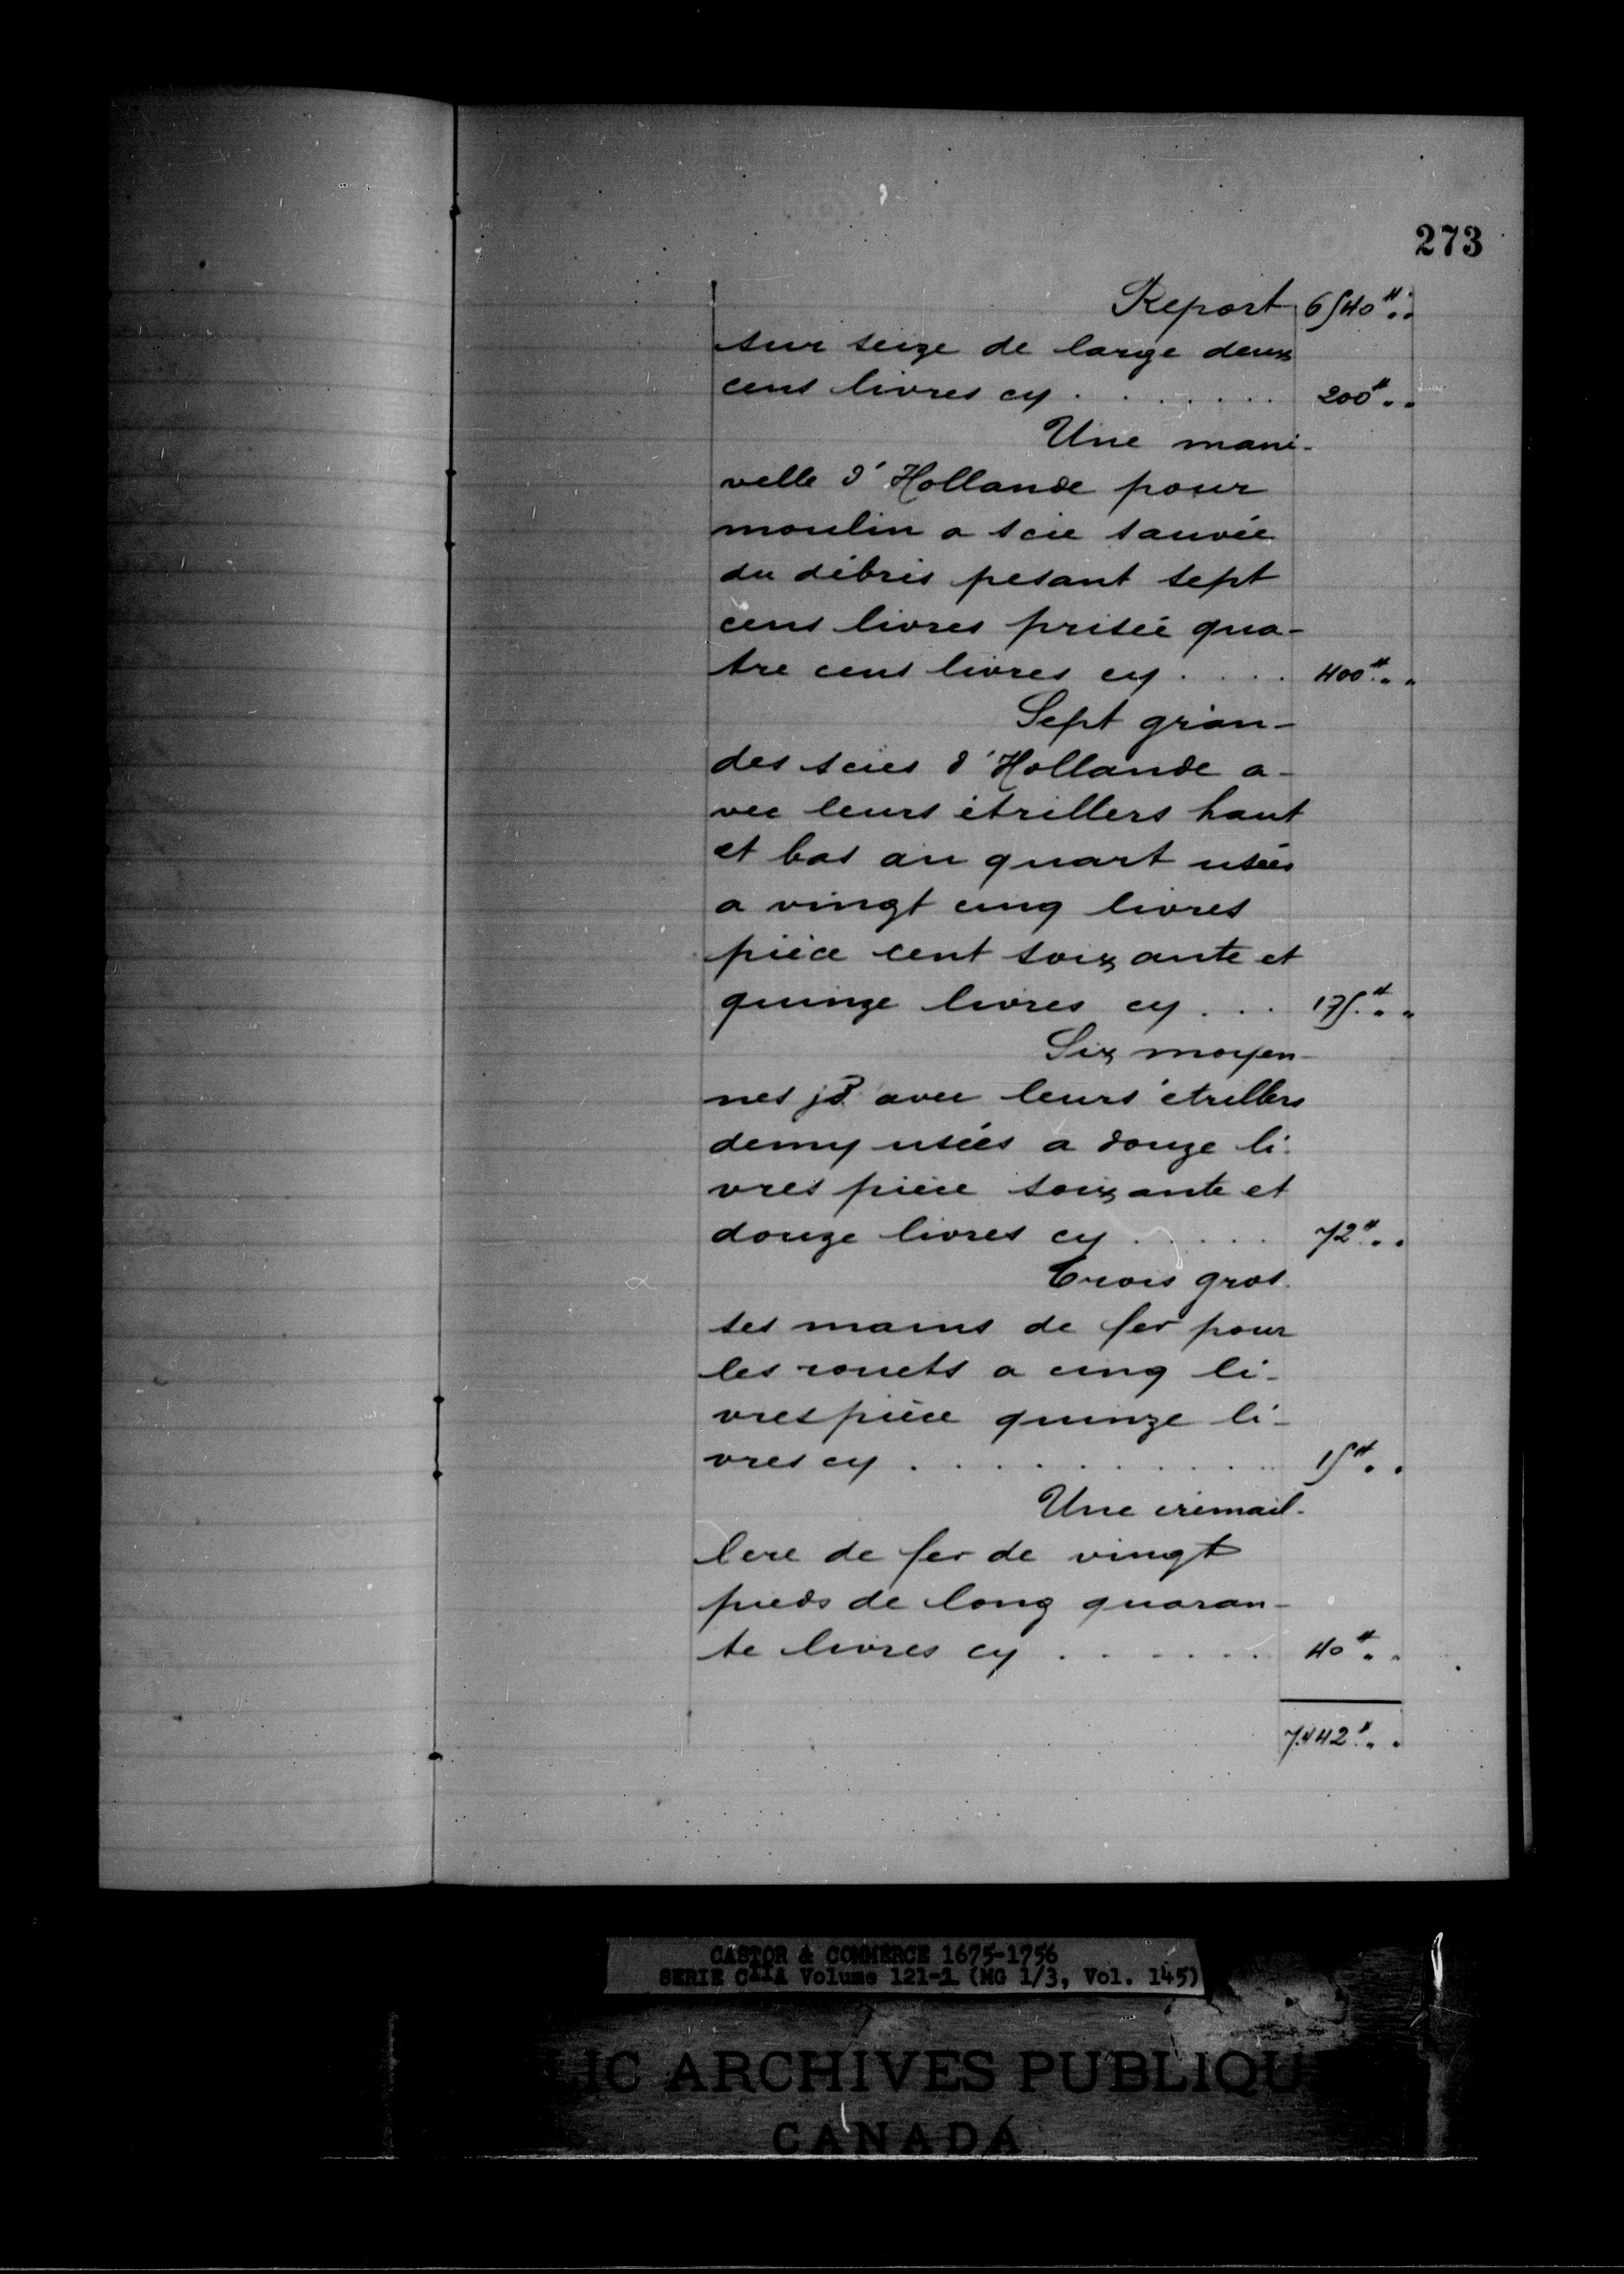 273
Report 6540# „ „
sur seize de large deux
cens livres cy . . . . . . . 200# „ „
Une mani-
velle d'Hollande pour
moulin a scie sauvée
du débris pesant sept
cens livres prisée qua-
tre cens livres cy . . . . 400# „ „
Sept gran-
des scies d'Hollande a-
vec leurs étrillers haut
et bas au quart usées
a vingt cinq livres
pièce cent soixante et
quinze livres cy . . . 175# „ „
Six moyen-
nes jd avec leurs étrillers
demy usées a douze li-
vres pièce soixante et
douze livres cy . . . . . 72# „ „
Trois gros-
ses mains de fer pour
les rouets a cinq li-
vres pièce quinze li-
vres cy . . . . . . . . . . 15# „ „
Une crémail-
lere de fer de vingt
pieds de long quaran-
te livres cy . . . . . . 40# „ „
7442# „ „
CASTOR & COMMERCE 1675-1756
SERIE C11A Volume 121-1 (MG 1/3, Vol. 145)
IC ARCHIVES PUBLIQU
CANADA